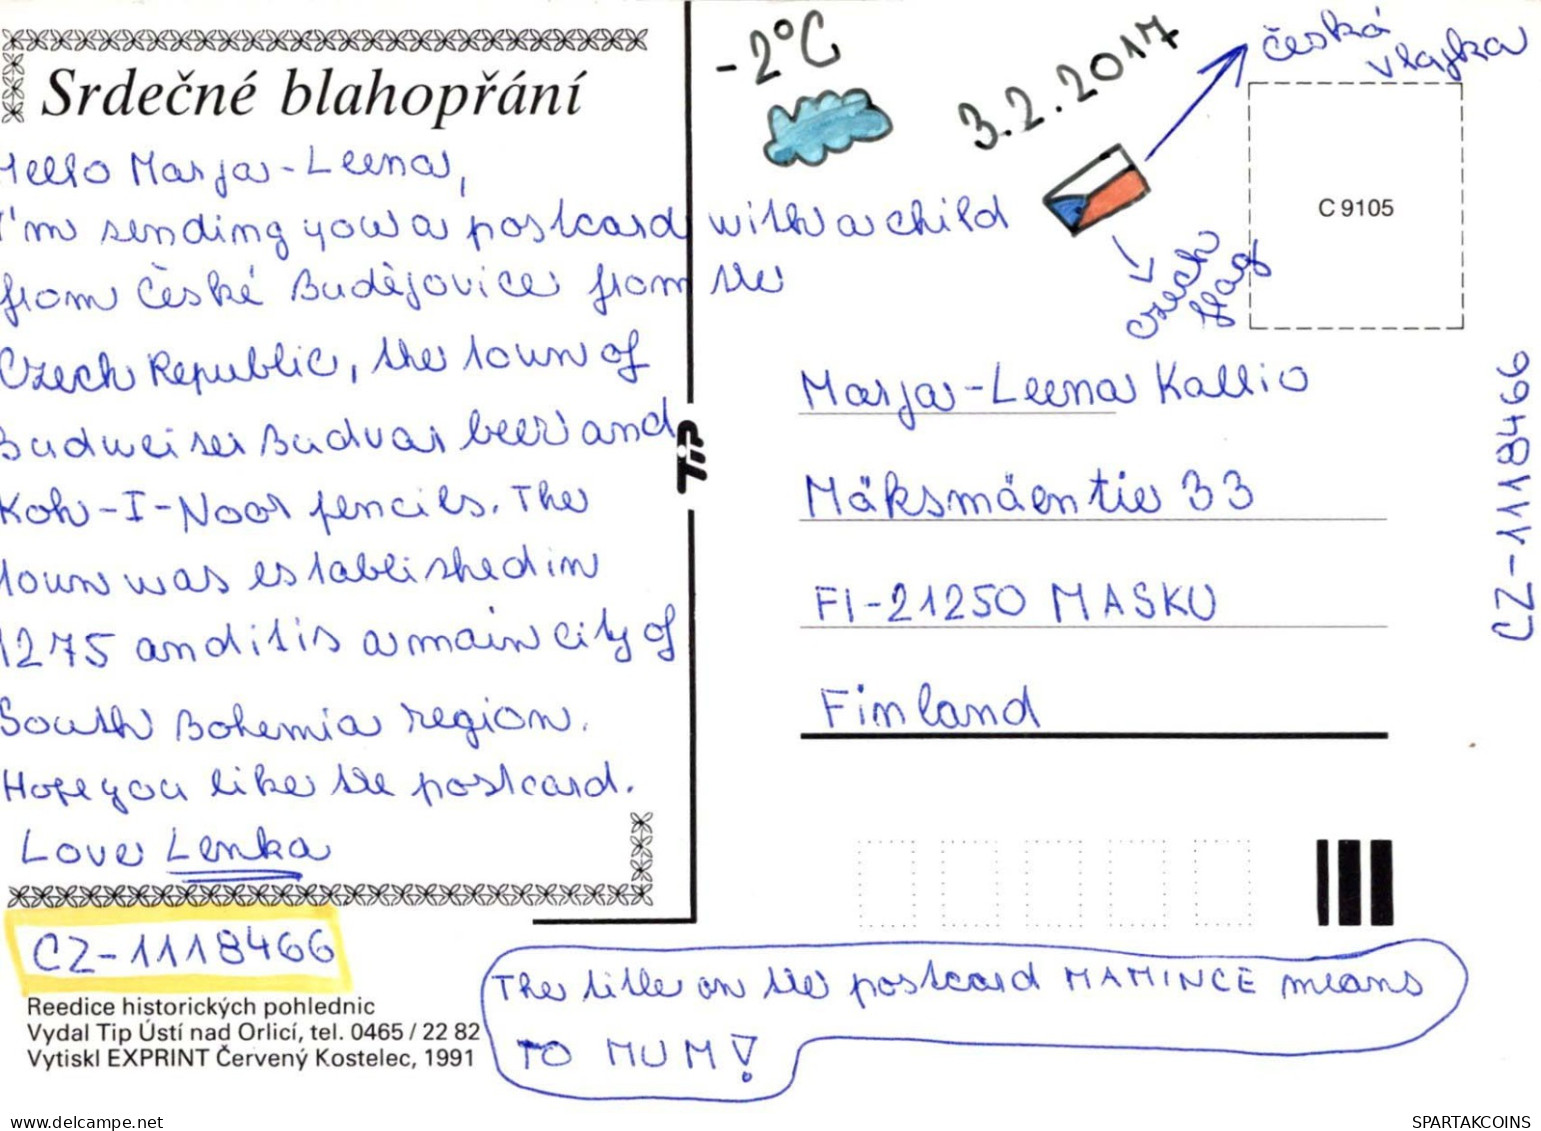 Srdečné blahopřání
Hello Marja-Leena,
I'm sending you a postcard with a child
from České Budějovice from the
Czech Republic, the town of
Budweiser Budvar beer and
Koh-I-Noor pencils. The
town was established in
1275 and it is a main city of
South Bohemia region.
Hope you like the postcard.
Love Lenka
CZ-1118466
Reedice historických pohlednic
Vydal Tip Ústí nad Orlicí, tel. 0465 / 22 82
Vytiskl EXPRINT Červený Kostelec, 1991
The title on the postcard MAMINCE means
TO MUM!
-2°C
3.2.2017
česká
vlajka
Czech
flag
C 9105
TIP
Marja-Leena Kallio
Mäksmäentie 33
FI-21250 MASKU
Finland
CZ-1118466
www.delcampe.net
SPARTAKCOINS